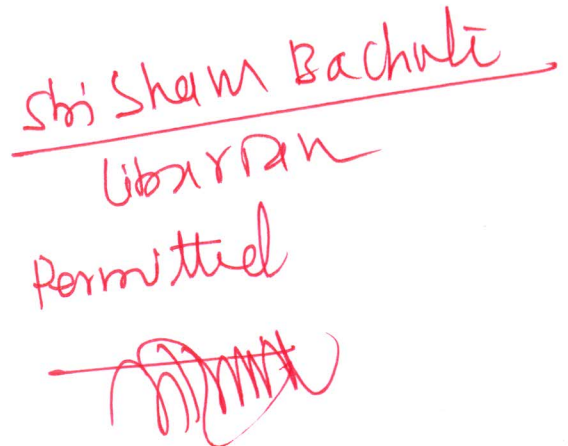 Shri Sham Bachule
Librarian
Permitted